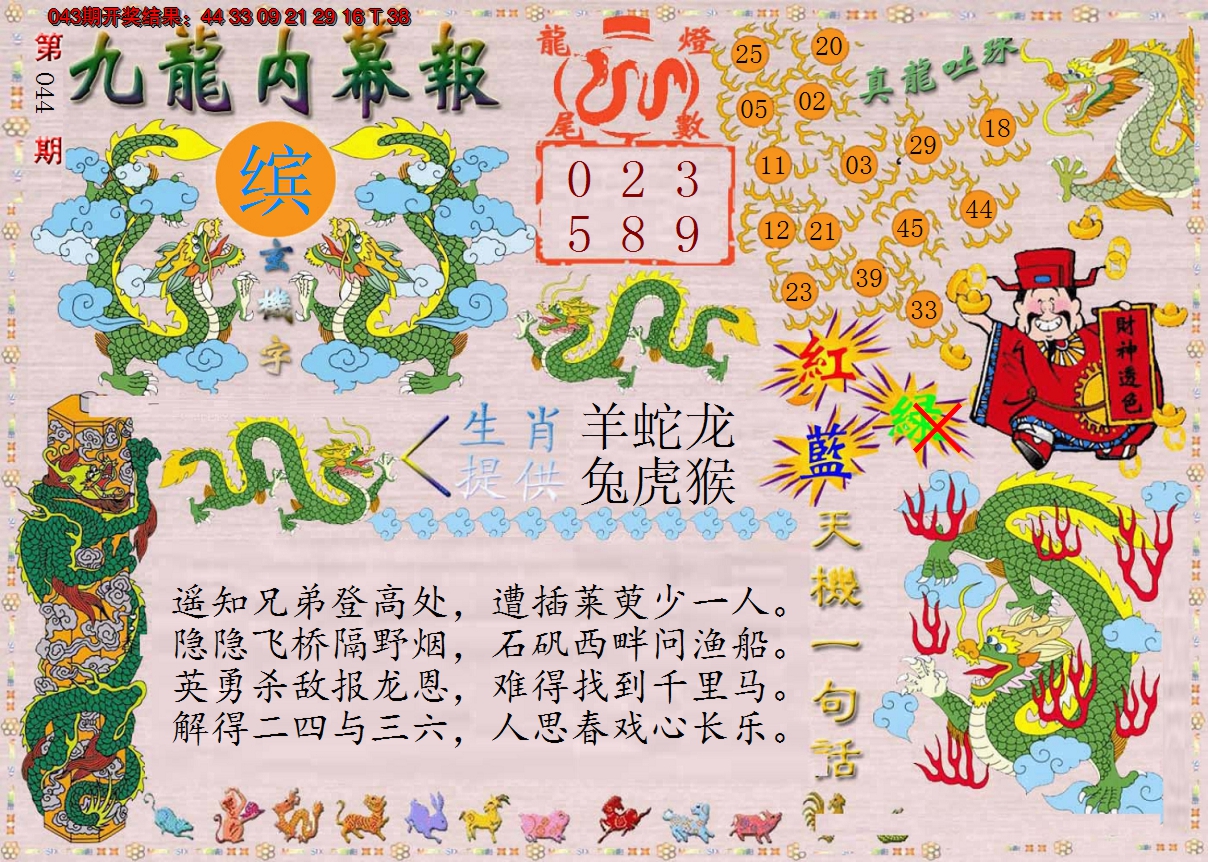 043期开奖结果：44 33 09 21 29 16 T 38
第044期
九龍内幕報
缤
玄機字
龍燈
尾數
0 2 3
5 8 9
真龍吐珠
25 20
05 02
29 18
11 03
44
12 21 45
39
23 33
財神透色
紅
綠
藍
生肖 羊蛇龙
提供 兔虎猴
天機一句話
遥知兄弟登高处，遭插莱萸少一人。
隐隐飞桥隔野烟，石矾西畔问渔船。
英勇杀敌报龙恩，难得找到千里马。
解得二四与三六，人思春戏心长乐。